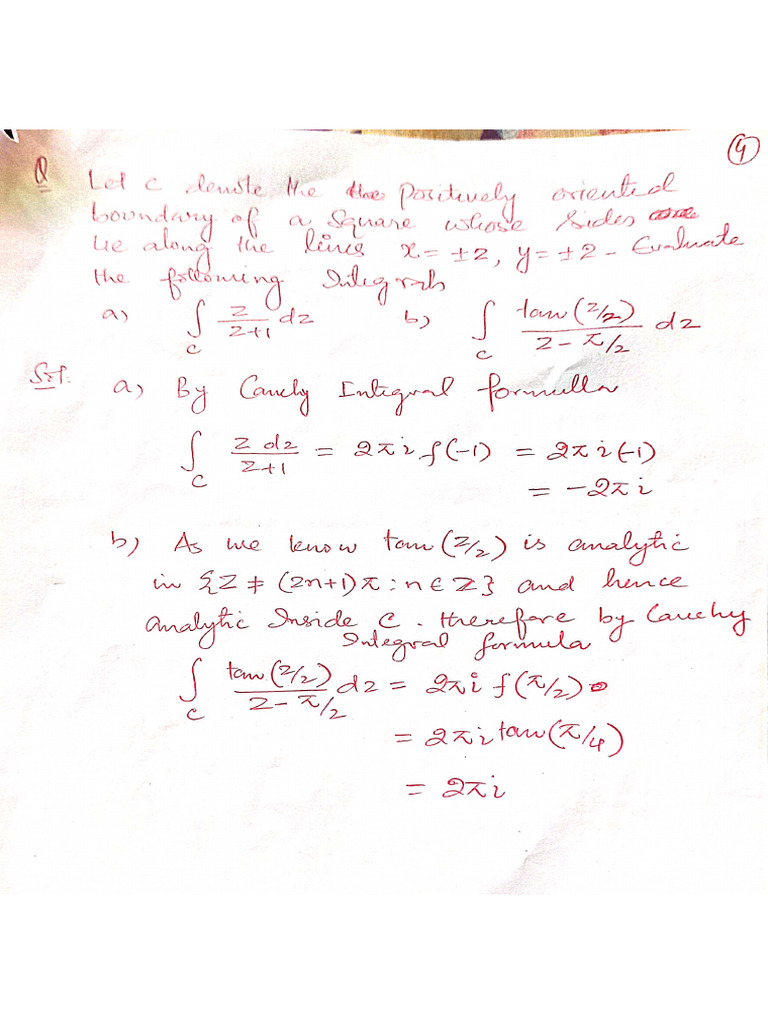 ④
Q Let C denote the the positively oriented
boundary of a square whose sides
lie along the lines x = ±2, y = ±2 - Evaluate
the following Integrals
a) ∫_C z/(z+1) dz b) ∫_C tan(z/2)/(z - π/2) dz
Sol. a) By Cauchy Integral formula
∫_C z dz/(z+1) = 2πi f(-1) = 2πi(-1)
= -2πi
b) As we know tan(z/2) is analytic
in {Z ≠ (2n+1)π : n ∈ Z} and hence
analytic Inside C. therefore by Cauchy
Integral formula
∫_C tan(z/2)/(z - π/2) dz = 2πi f(π/2)
= 2πi tan(π/4)
= 2πi